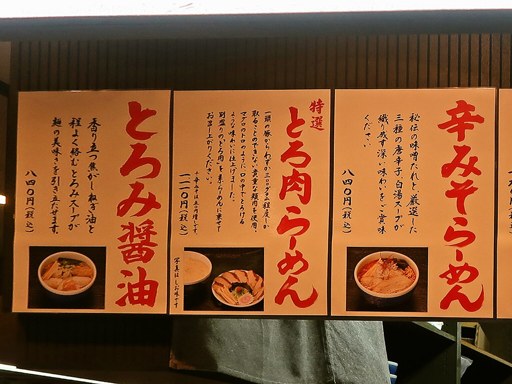 辛みそらーめん
秘伝の味噌だれと、厳選した
三種の唐辛子、白湯スープが
織り成す深い味わいをご賞味
ください。
八四〇円(税込)
特選
とろ肉らーめん
一頭の豚からわずか三〇〇g程度しか
取ることのできない貴重な豚肉を使用。
マグロのトロのように口の中でとろける
ような味わいに仕上げました。
別盛りのとろ肉を熱々らーめんに乗せて
お召し上がりください。
一一一〇円(税込)
写真はしお味です
とろみ醤油
香り立つ焦がしねぎ油と
程よく絡むとろみスープが
麺の美味さを引き立たせます。
八四〇円(税込)